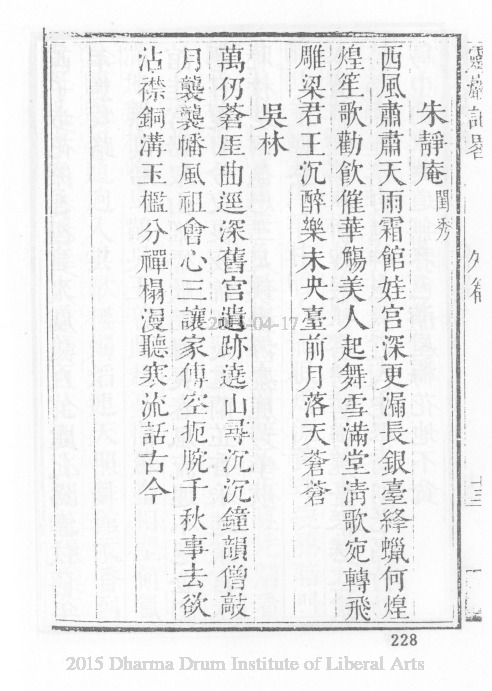 靈巖記畧 外篇 十三
朱靜庵閨秀
西風肅肅天雨霜館娃宮深更漏長銀臺絳蠟何煌
煌笙歌勸飲催華觴美人起舞雪滿堂清歌宛轉飛
雕梁君王沉醉樂未央臺前月落天蒼蒼
吳林
萬仞蒼厓曲逕深舊宮遺跡遶山尋沉沉鐘韻僧敲
月襲襲幡風祖會心三讓家傳空扼腕千秋事去欲
沾襟銅溝玉檻分禪榻漫聽寒流話古今
228
2015 Dharma Drum Institute of Liberal Arts